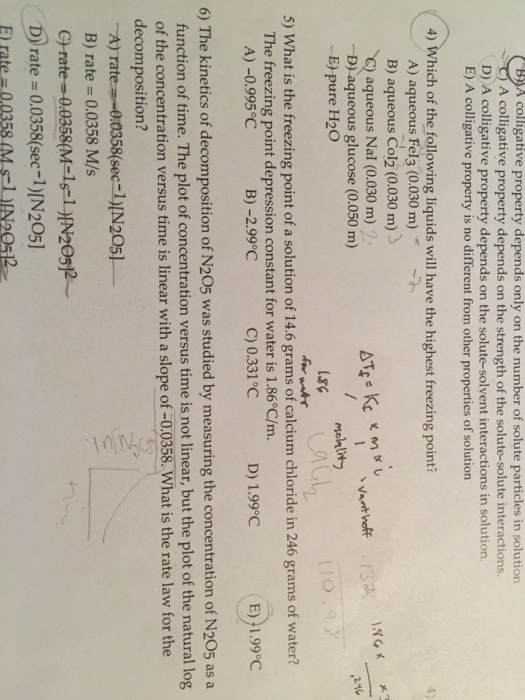 B) A colligative property depends only on the number of solute particles in solution
C) A colligative property depends on the strength of the solute-solute interactions.
D) A colligative property depends on the solute-solvent interactions in solution.
E) A colligative property is no different from other properties of solution
4) Which of the following liquids will have the highest freezing point?
A) aqueous FeI3 (0.030 m)
B) aqueous CoI2 (0.030 m) 3
C) aqueous NaI (0.030 m) 2
D) aqueous glucose (0.050 m)
E) pure H2O
ΔTf = Kf x m x i
1.86
for water
molality
vant hoff
.132
1.86 x
.246
CaCl2
110.98
5) What is the freezing point of a solution of 14.6 grams of calcium chloride in 246 grams of water?
The freezing point depression constant for water is 1.86°C/m.
A) -0.995°C B) -2.99°C C) 0.331°C D) 1.99°C E) -1.99°C
6) The kinetics of decomposition of N2O5 was studied by measuring the concentration of N2O5 as a
function of time. The plot of concentration versus time is not linear, but the plot of the natural log
of the concentration versus time is linear with a slope of -0.0358. What is the rate law for the
decomposition?
A) rate = -0.0358(sec-1)[N2O5]
B) rate = 0.0358 M/s
C) rate = 0.0358(M-1s-1)[N2O5]2
D) rate = 0.0358(sec-1)[N2O5]
E) rate = 0.0358 (M s-1)[N2O5]2